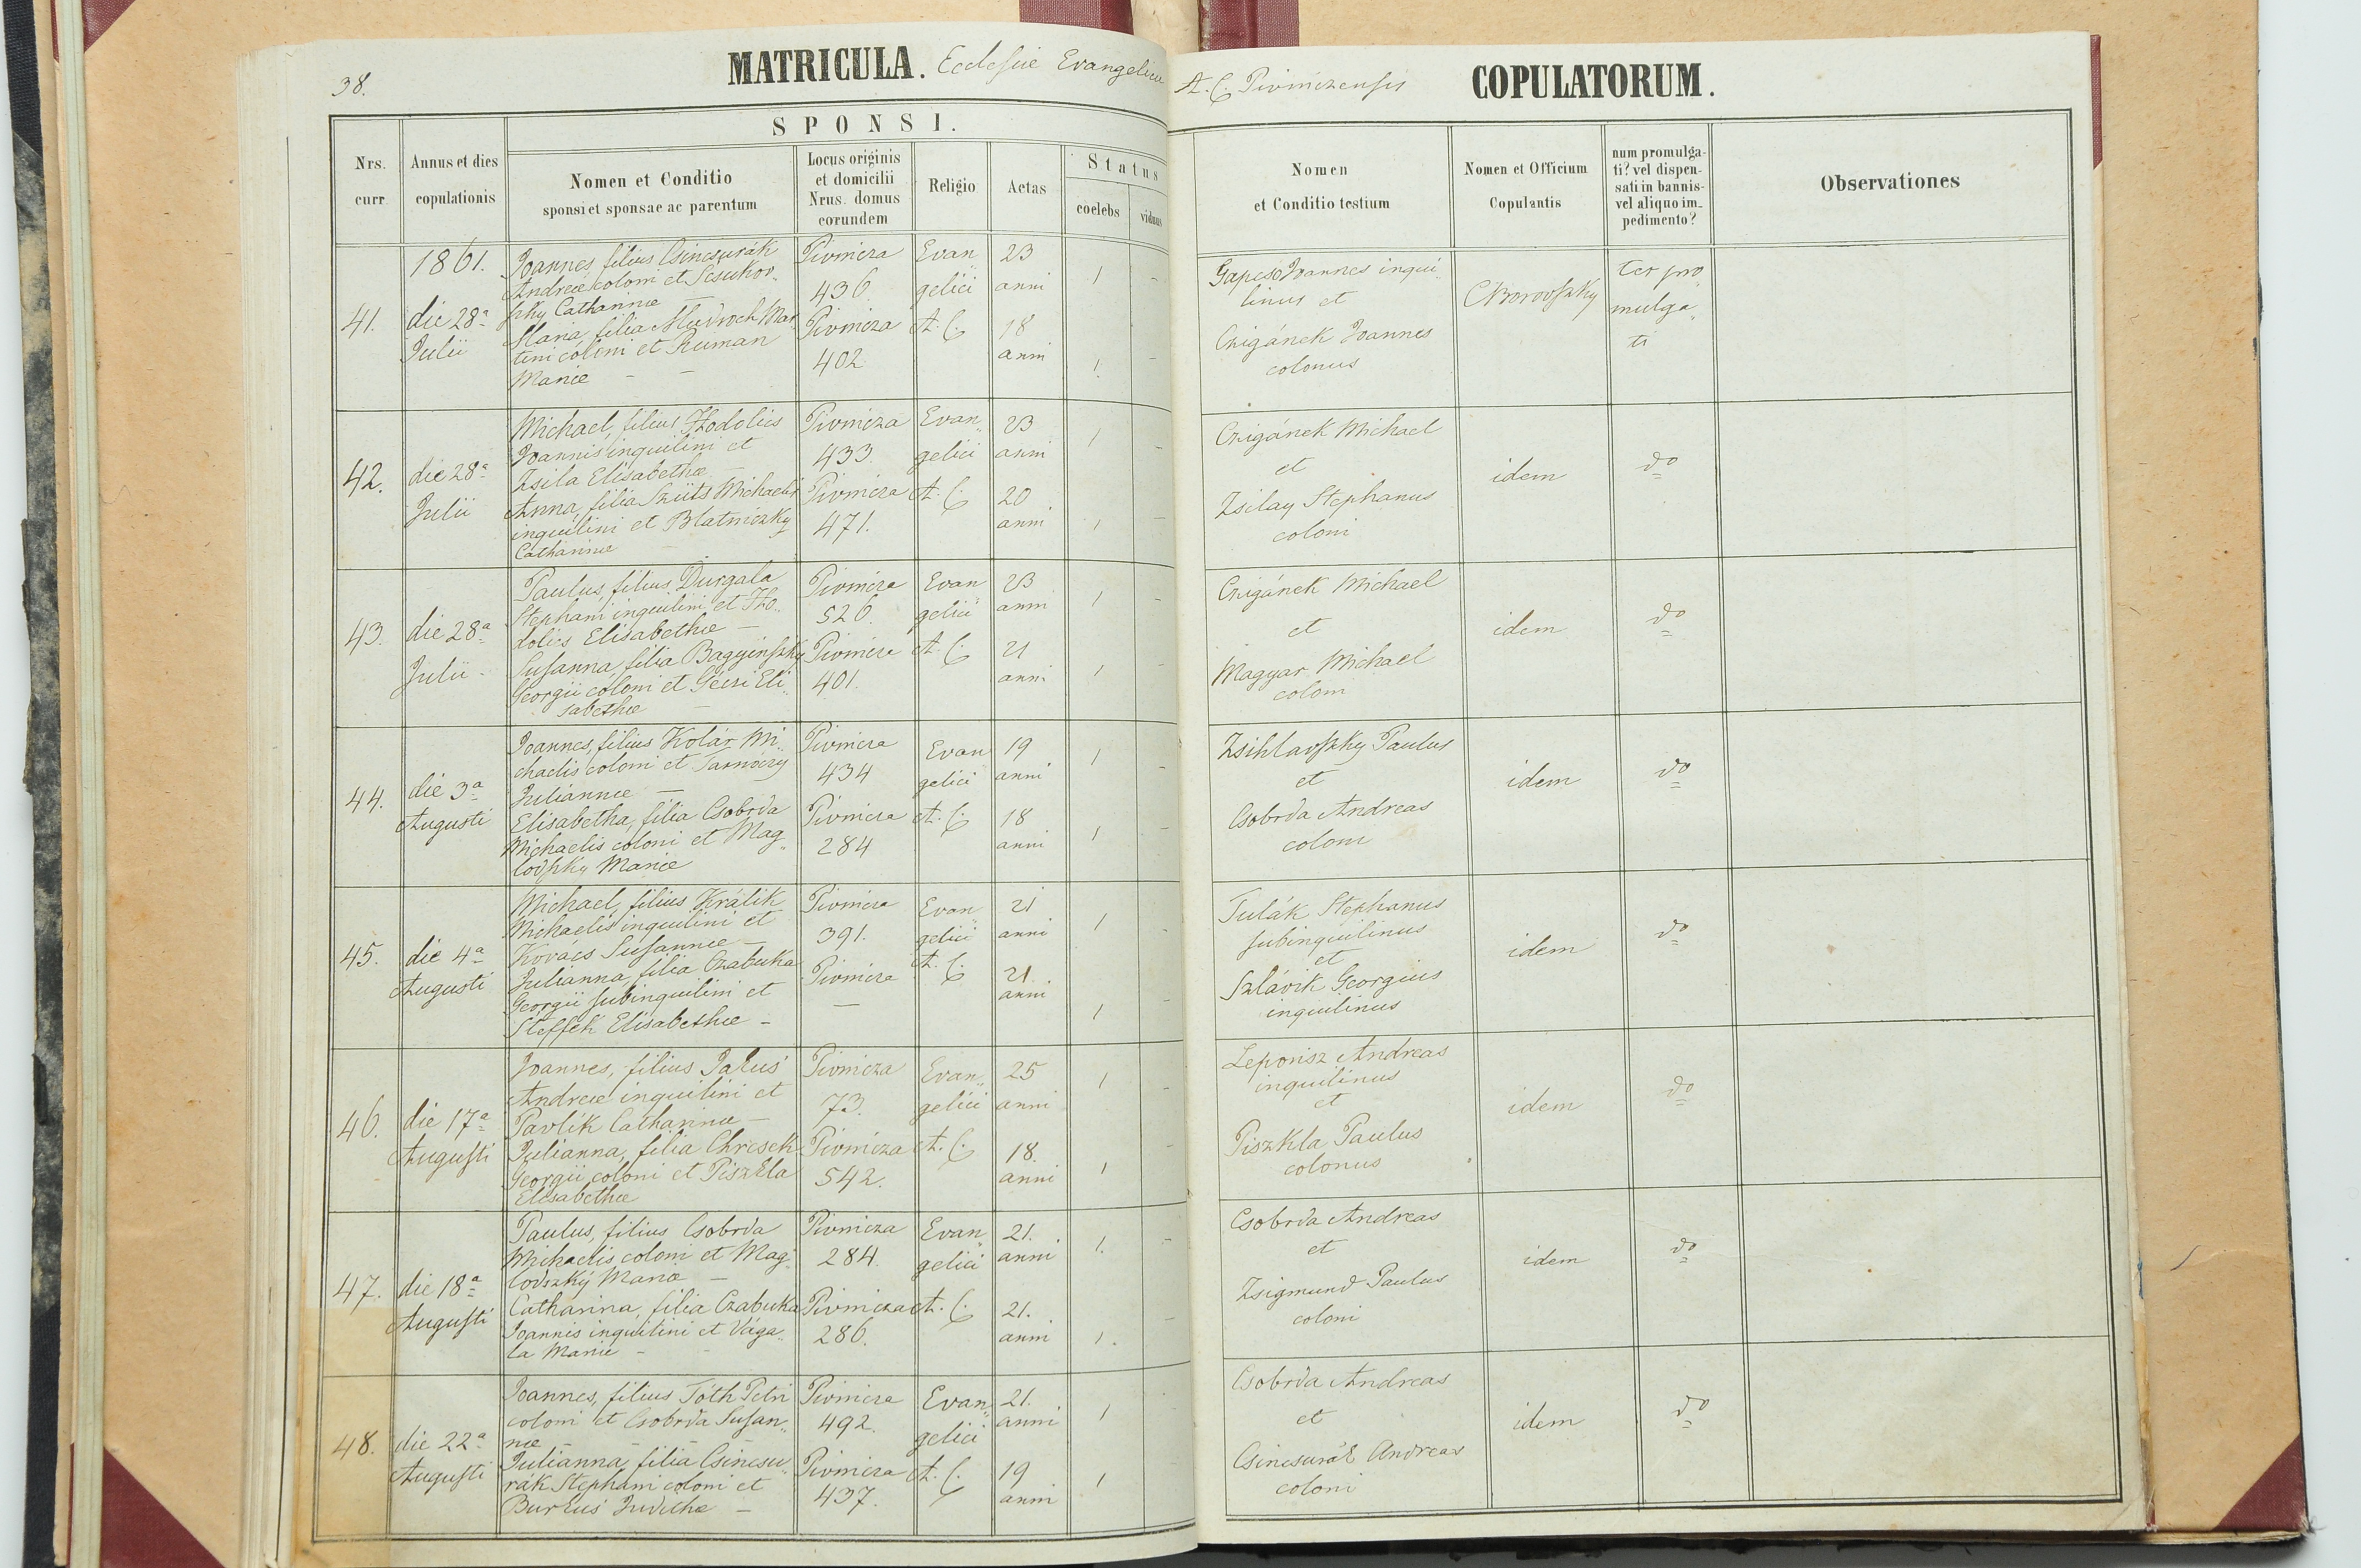 38.
MATRICULA. Ecclesiae Evangelicae A. C. Pivniczensis COPULATORUM.
SPONSI.
Nrs. curr
Annus et dies copulationis
Nomen et Conditio
sponsi et sponsae ac parentum
Locus originis
et domicilii
Nrus. domus
eorundem
Religio
Aetas
Status
coelebs
viduus
Nomen
et Conditio testium
Nomen et Officium
Copulantis
num promulga-
ti? vel dispen-
sati in bannis-
vel aliquo im-
pedimento?
Observationes
1861.
41. die 28a Julii
Joannes, filius Csincsurák
Andreae coloni et
Catharinae –
Maria, filia Mudroch Mar„
tini coloni et Human
Mariae – –
Pivnicza
436
Pivnicza
402
Evan
gelici
A. C.
23
anni
18
anni
1 –
1. –
Gapcso Joannes inqui„
linus et
Czigánek Joannes
colonus
Chorovszky
ter pro„
mulga„
ti
42. die 28a Julii
Michael, filius Hodolics
Joannis inquilini et
Zsila Elisabethae –
Anna, filia Szüts Michaelis
inquilini et Blatniczky
Catharinae –
Pivnicza
433.
Pivnicza
471.
Evan„
gelici
A. C.
23
anni
20
anni
1 –
1 –
Czigánek Michael
et
Zsilay Stephanus
coloni
idem
do
43. die 28a Julii
Paulus, filius Durgala
Stephani inquilini et Ho„
dolics Elisabethae –
Susanna, filia Bagyinszky
Georgii coloni et Géczi Eli„
sabethae –
Pivnicza
526.
Pivnicza
401.
Evan
gelici
A. C.
23
anni
21
anni
1 –
1 –
Czigánek Michael
et
Magyar Michael
coloni
idem
do
44. die 3a Augusti
Joannes, filius Kolár Mi„
chaelis coloni et Tarnóczy
Juliannae –
Elisabetha, filia Csobrda
Michaelis coloni et Mag„
lovszky Mariae
Pivnicza
434
Pivnicza
284
Evan
gelici
A. C.
19
anni
18
anni
1 –
1 –
Zsihlavszky Paulus
et
Csobrda Andreas
coloni
idem
do
45. die 4a Augusti
Michael, filius Králik
Michaelis inquilini et
Kovács Susannae –
Julianna, filia Czabuka
Georgii subinquilini et
Steffek Elisabethae –
Pivnicza
391.
Pivnicza
–
Evan
gelici
A. C.
21
anni
21
anni
1 –
1 –
Tulák Stephanus
subinquilinus
et
Szlávik Georgius
inquilinus
idem
do
46. die 17a Augusti
Joannes, filius Jakus
Andreae inquilini et
Pavlik Catharinae –
Julianna, filia Chrcsek
Georgii coloni et Piszkla
Elisabethae
Pivnicza
73.
Pivnicza
542.
Evan„
gelici
A. C.
25
anni
18.
anni
1 –
1 –
Leporisz Andreas
inquilinus
et
Piszkla Paulus
colonus
idem
do
47. die 18a Augusti
Paulus, filius Csobrda
Michaelis coloni et Mag„
lovszky Mariae –
Catharina, filia Czabuka
Joannis inquilini et Vága„
la Mariae –
Pivnicza
284.
Pivnicza
286.
Evan
gelici
A. C.
21.
anni
21.
anni
1. –
1. –
Csobrda Andreas
et
Zsigmund Paulus
coloni
idem
do
48. die 22a Augusti
Joannes, filius Tóth Petri
coloni et Csobrda Susan„
nae – – –
Julianna, filia Csincsu„
rák Stephani coloni et
Burkus Judithae –
Pivnicza
492.
Pivnicza
437.
Evan„
gelici
A. C.
21.
anni
19
anni
1
1
Csobrda Andreas
et
Csincsurák Andreas
coloni
idem
do